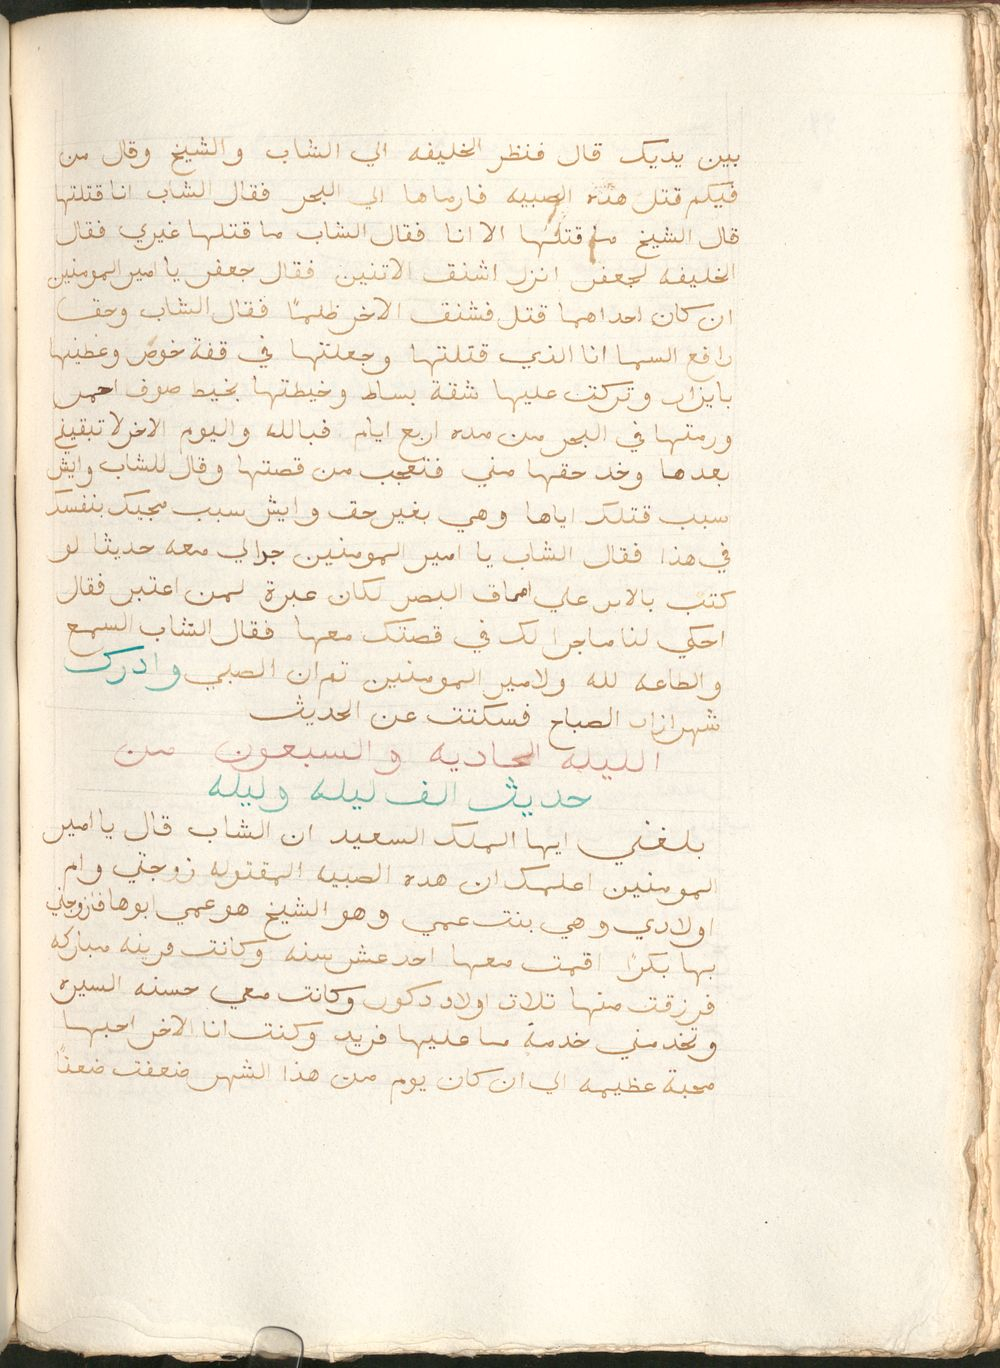 بين يديك قال فنظر الخليفه الي الشاب والشيخ وقال من
فيكم قتل هذه الصبيه فارماها الي البحر فقال الشاب انا قتلتها
قال الشيخ ما قتلها الا انا فقال الشاب ما قتلها غيري فقال
الخليفه لجعفر انزل اشنق الاتنين فقال جعفر يا امير المومنين
ان كان احداهما قتل فشنق الاخر ظلمًا فقال الشاب وحق
رافع السما انا الذي قتلتها وجعلتها في قفة خوص وغطيتها
بايزار وتركت عليها شقة بساط وخيطتها بخيط صوف احمر
ورمتها في البحر من مده اربع ايام فبالله واليوم الاخر لا تبقيني
بعدها وخد حقها مني فتعجب من قصتها وقال للشاب وايش
سبب قتلك اياها وهي بغير حق وايش سبب مجيك بنفسك
في هذا فقال الشاب يا امير المومنين جرا لي معه حديثا لو
كتب بالابر علي اماق البصر لكان عبرة لمن اعتبر فقال
احكي لنا ما جرا لك في قصتك معها فقال الشاب السمع
والطاعه لله ولامير المومنين تم ان الصبي وادرك
شهرازاد الصباح فسكتت عن الحديث
الليله الحاديه والسبعون من
حديث الف ليله وليله
بلغني ايها الملك السعيد ان الشاب قال يا امير
المومنين اعلمك ان هده الصبيه المقتوله زوجتي وام
اولادي وهي بنت عمي وهو الشيخ هو عمي ابوها فازوجني
بها بكرًا اقمت معها احد عشر سنه وكانت قرينه مباركه
فرزقت منها تلات اولاد دكور وكانت معي حسنه السيره
وتخدمني خدمة ما عليها فريد وكنت انا الاخر احبها
محبة عظيمه الي ان كان يوم من هذا الشهر ضعفت ضعفًا